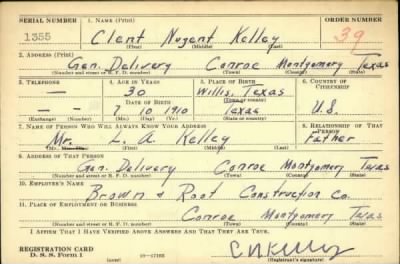 SERIAL NUMBER 1. NAME (Print) ORDER NUMBER
1355 Clent Nugent Kelley 39
(First) (Middle) (Last)
2. ADDRESS (Print)
Gen. Delivery Conroe Montgomery Texas
(Number and street or R. F. D. number) (Town) (County) (State)
3. TELEPHONE 4. AGE IN YEARS 5. PLACE OF BIRTH 6. COUNTRY OF CITIZENSHIP
— 30 Willis, Texas
(Town or county)
DATE OF BIRTH
— 7 10 1910 Texas U.S.
(Exchange) (Number) (Mo.) (Day) (Yr.) (State or country)
7. NAME OF PERSON WHO WILL ALWAYS KNOW YOUR ADDRESS 8. RELATIONSHIP OF THAT PERSON
Mr. L. A. Kelley Father
(Mr., Mrs., Miss) (First) (Middle) (Last)
9. ADDRESS OF THAT PERSON
Gen. Delivery Conroe Montgomery Texas
(Number and street or R. F. D. number) (Town) (County) (State)
10. EMPLOYER'S NAME
Brown & Root Construction Co.
11. PLACE OF EMPLOYMENT OR BUSINESS
Conroe Montgomery Texas
(Number and street or R. F. D. number) (Town) (County) (State)
I AFFIRM THAT I HAVE VERIFIED ABOVE ANSWERS AND THAT THEY ARE TRUE.
REGISTRATION CARD
D. S. S. Form 1 (over) 16—17105 C N Kelley